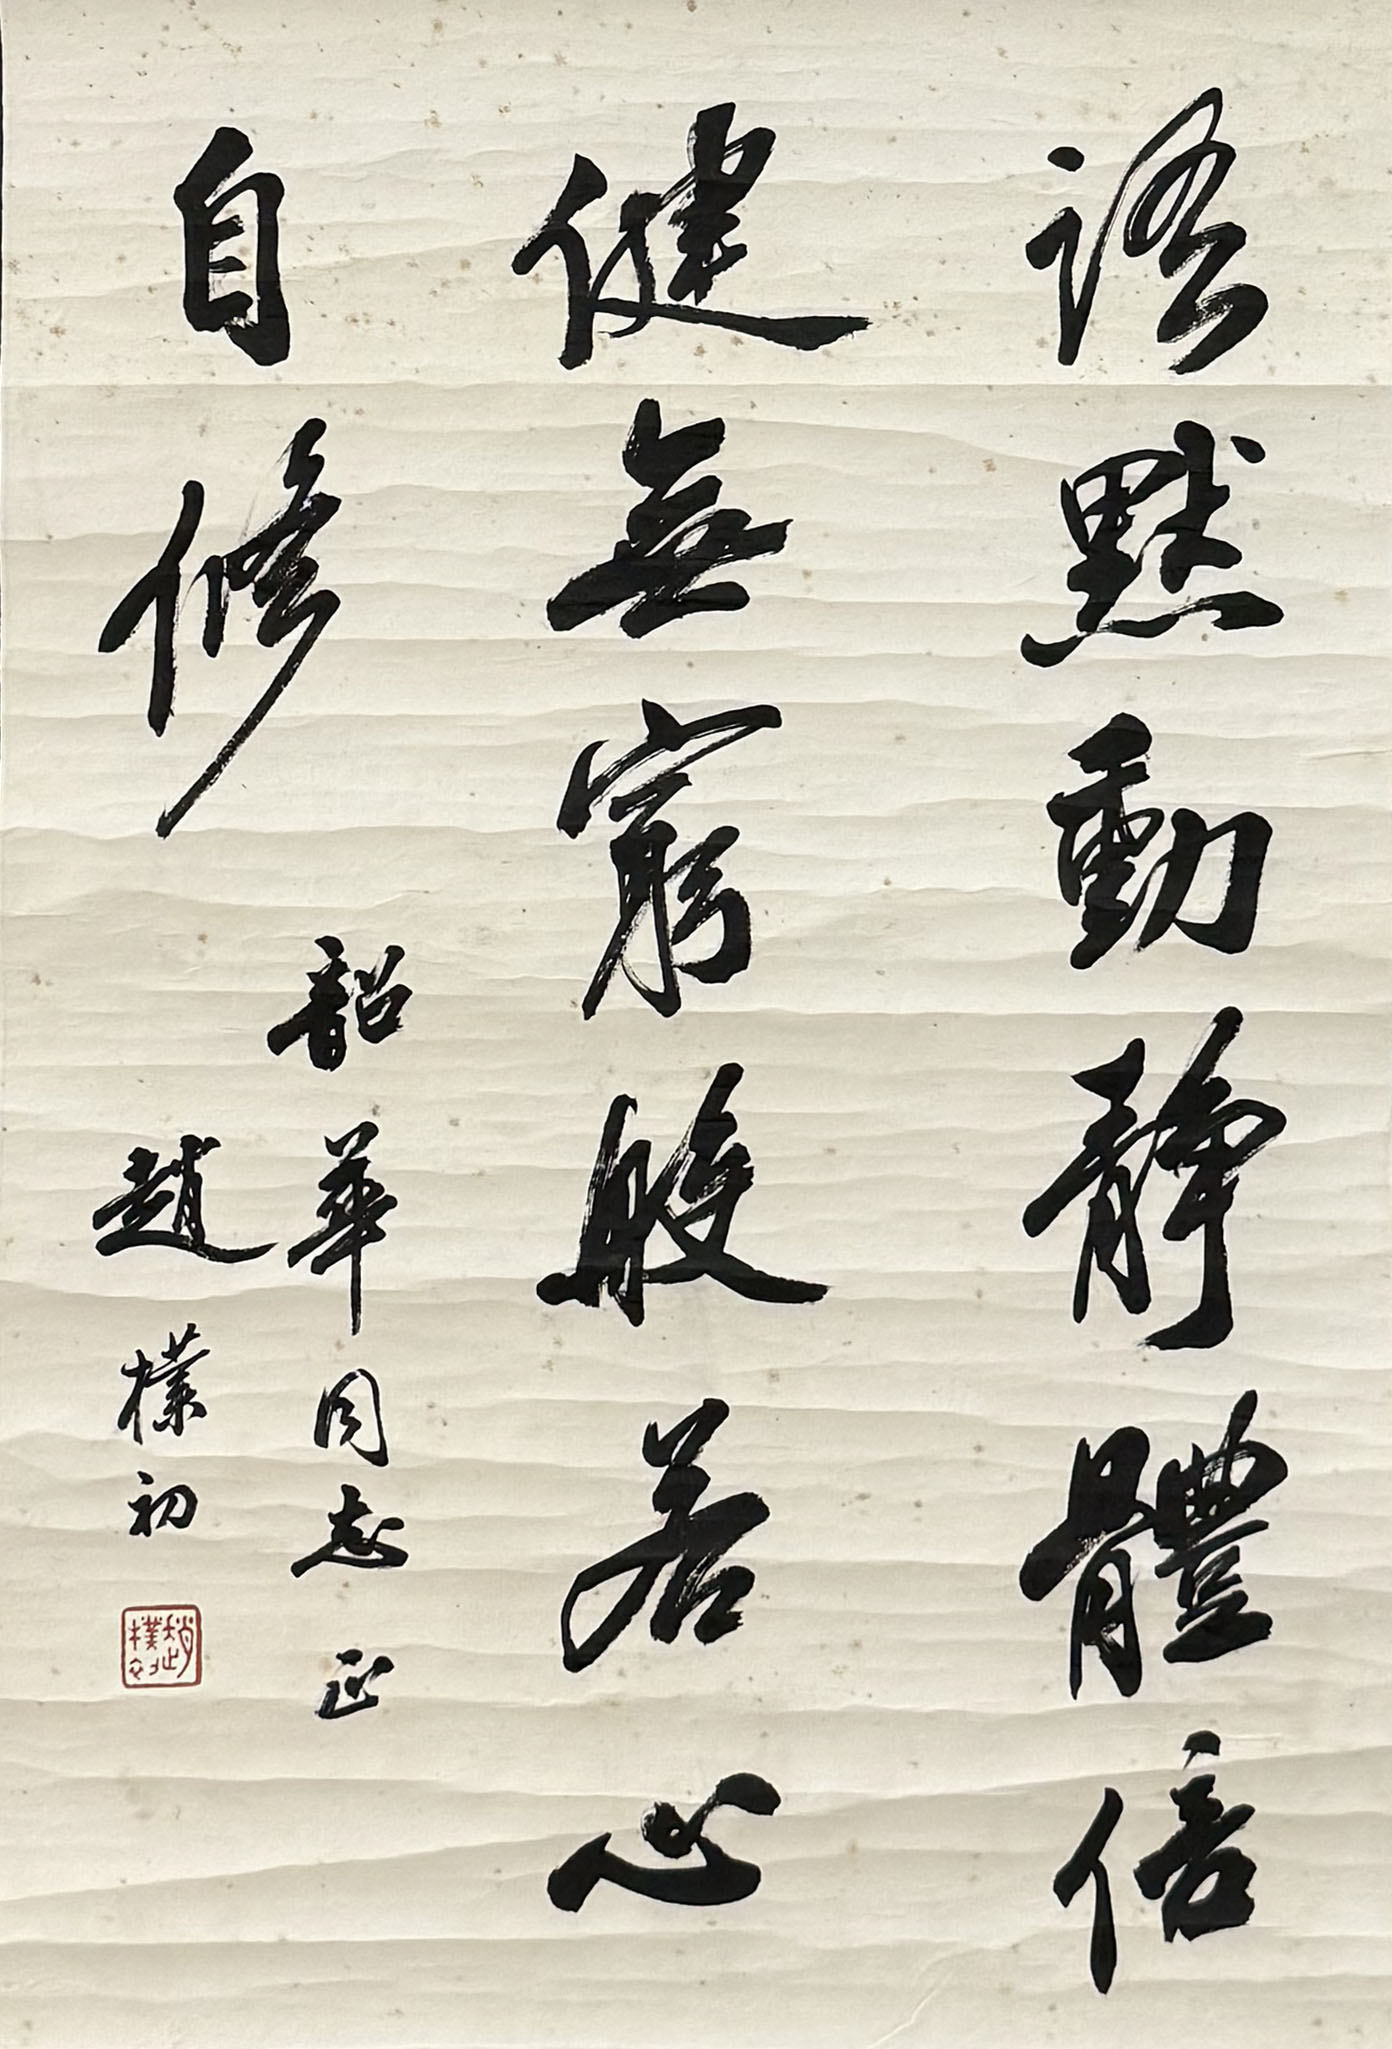 語默動靜體倍
健無窮般若心
自修
韶華同志正
趙樸初
趙樸初